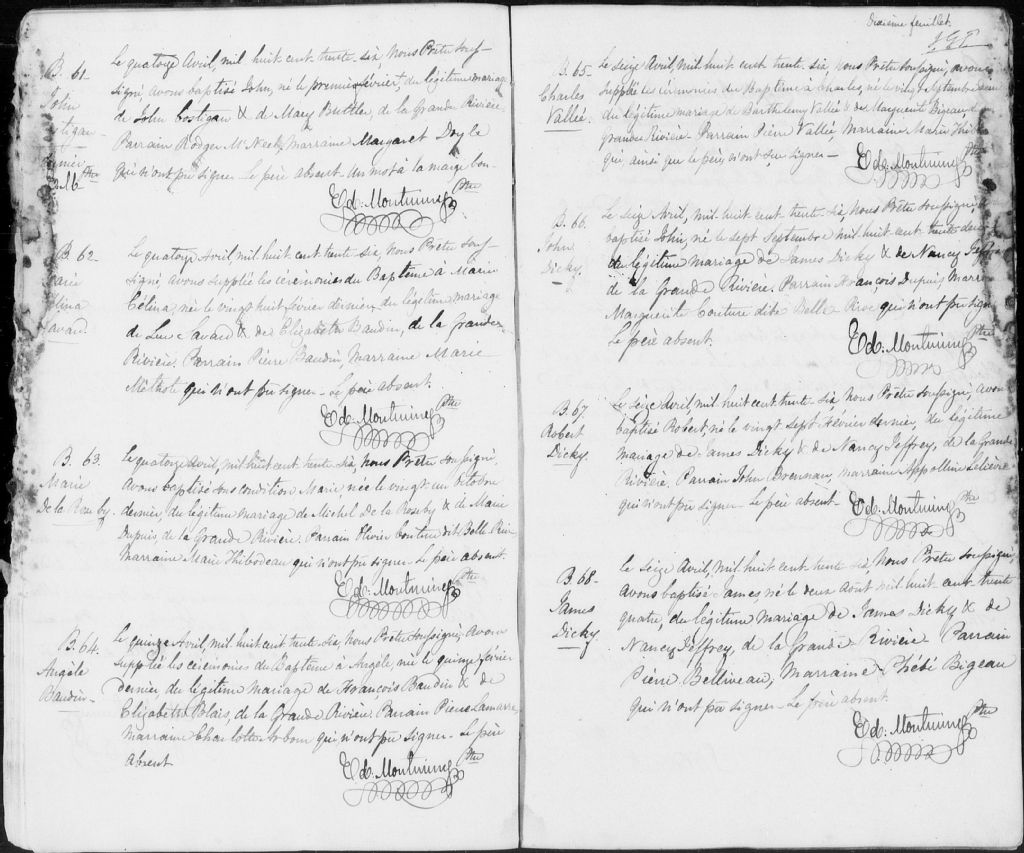 B. 61.
John
Costigan
dernier
Ed. M. Ptre
Le quatorze Avril, mil huit cent trente six, Nous Prêtre sous-
signé avons baptisé John, né le premier février, + du légitime mariage
de John Costigan & de Mary Buttler, de la Grande Rivière
Parrain Rodger McNeel, Marraine Margaret Doyle
qui n'ont pu signer. Le père absent. Un mot à la marge bon-
Ed. Montminy Ptre
B. 62-
Marie
Célina
Savard
Le quatorze Avril mil huit cent trente six, Nous Prêtre sous-
signé, avons supplée les cérémonies du Baptême à Marie
Célina, née le vingt huit février dernier du légitime mariage
de Luc Savard & de Elizabeth Baudin, de la Grande
Rivière. Parrain Pierre Baudin, Marraine Marie
Méthote qui n'ont pu signer - Le père absent.
Ed. Montminy Ptre
B. 63.
Marie
De la Roseby
Le quatorze Avril, mil huit cent trente six, Nous Prêtre soussigné,
avons baptisé sous condition Marie, née le vingt un Octobre
dernier, du légitime mariage de Michel De la Roseby & de Marie
Dupuis, de la Grande Rivière. Parrain Olivier Couture dit Belle-Rive
Marraine Marie Thibodeau qui n'ont pu signer - Le père absent
Ed. Montminy Ptre
B. 64.
Angèle
Baudin-
Le quinze Avril, mil huit cent trente six, Nous Prêtre soussigné, avons
supplée les cérémonies du Baptême à Angèle, née le quinze février
dernier du légitime mariage de François Baudin & de
Elizabeth Blais, de la Grande Rivière. Parrain Pierre Lamarre,
Marraine Charlotte qui n'ont pu signer - Le père
absent
Ed. Montminy Ptre
Dixième feuillet.
B. 65-
Charles
Vallée.
Le seize Avril, mil huit cent trente six, Nous Prêtre soussigné, avons
supplée les cérémonies du Baptême à Charles, né le vingt Septembre dern
du légitime mariage de Barthelemy Vallée & de Marguerite Bigeaud,
grande Rivière - Parrain Pierre Vallée, Marraine Marie
qui, ainsi que le père n'ont su signer -
Ed. Montminy Ptre
B. 66.
John
Dicky.
Le seize Avril, mil huit cent trente six, Nous Prêtre soussigné,
baptisé John, né le sept Septembre mil huit cent trente deux
du légitime mariage de James Dicky & de Nancy Jeffrey
de la Grande Rivière, Parrain François Dupuis, Marraine
Marguerite Couture dite Belle Rive qui n'ont pu signer
Le père absent.
Ed. Montminy Ptre
B. 67.
Robert
Dicky.
Le seize Avril mil huit cent trente six Nous Prêtre soussigné, avons
baptisé Robert, né le vingt sept février dernier, du légitime
mariage de James Dicky & de Nancy Jeffrey, de la Grande
Rivière, Parrain John Brennan, marraine Appolline Lelièvre
qui n'ont pu signer - Le père absent
Ed. Montminy Ptre
B. 68-
James
Dicky.
Le seize Avril, mil huit cent trente six, Nous Prêtre soussigné,
avons baptisé James, né le deux Août mil huit cent trente
quatre, du légitime mariage de James Dicky & de
Nancy Jeffrey, de la Grande Rivière. Parrain
Pierre Belliveau, Marraine Phébé Bigeau
qui n'ont pu signer - Le père absent
Ed. Montminy Ptre